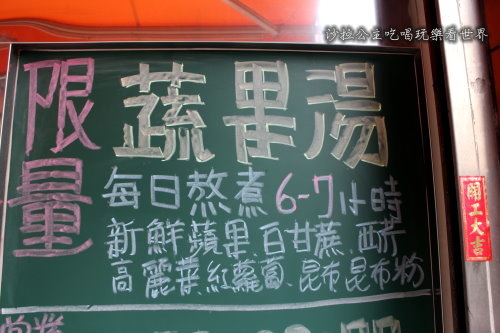 沙拉公主吃喝玩樂看世界
限量
蔬果湯
每日熬煮6-7小時
新鮮蘋果、白甘蔗、西芹
高麗菜紅蘿蔔、昆布昆布粉
開工大吉